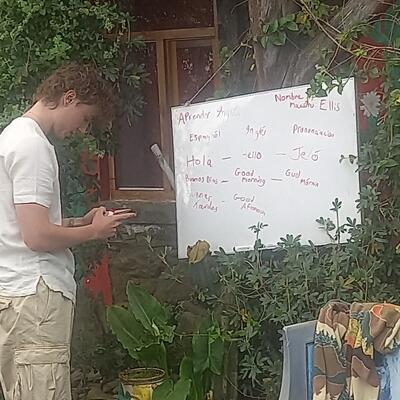 Aprender Inglés
Nombre maestro Ellis
Español Inglés Pronunciación
Hola – ello – Jeló
Buenos Dias – Good morning – Gud
Tardes – Good Afternoon